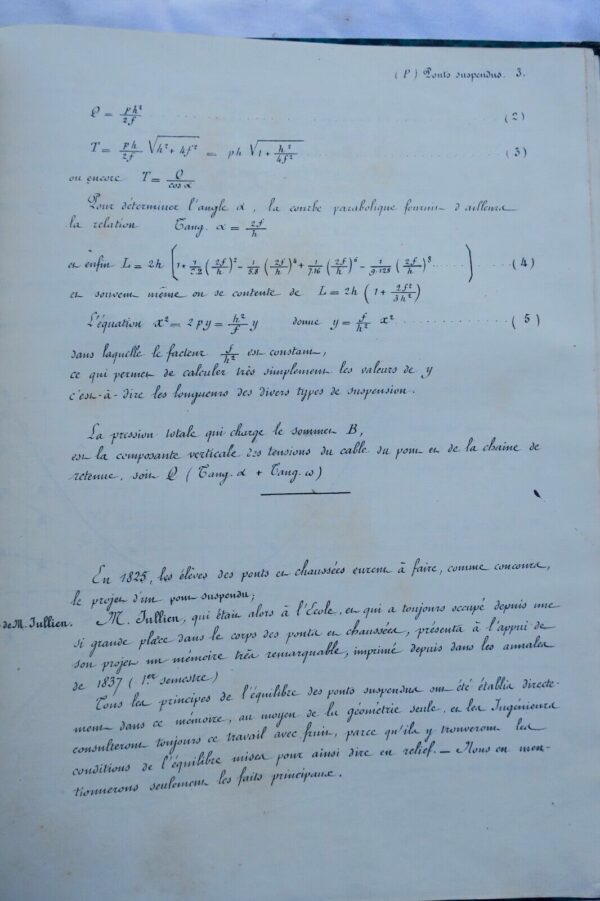 (P) Ponts suspendus. 3.
Q = ph²/2f ........ (2)
T = ph/2f √(h² + 4f²) = ph √(1 + h²/4f²) ........ (3)
ou encore T = Q/cos α
Pour déterminer l'angle α, la courbe parabolique fournit d'ailleurs
la relation Tang. α = 2f/h
et enfin L = 2h [1 + 1/2.3 (2f/h)² – 1/5.8 (2f/h)⁴ + 1/7.16 (2f/h)⁶ – 1/9.128 (2f/h)⁸ ........] (4)
et souvent même on se contente de L = 2h (1 + 2f²/3h²)
L'équation x² = 2py = h²/f y donne y = f/h² x² ........ (5)
dans laquelle le facteur f/h² est constant,
ce qui permet de calculer très simplement les valeurs de y
c'est-à-dire les longueurs des divers types de suspension.
La pression totale qui charge le sommet B,
est la composante verticale des tensions du cable du pont et de la chaîne de
retenue, soit Q (Tang. α + Tang. ω)
En 1825, les élèves des ponts et chaussées eurent à faire, comme concours,
le projet d'un pont suspendu;
de M. Jullien. M. Jullien, qui était alors à l'Ecole, et qui a toujours occupé depuis une
si grande place dans le corps des ponts et chaussées, présenta à l'appui de
son projet un mémoire très remarquable, imprimé depuis dans les annales
de 1837 (1er semestre)
Tous les principes de l'équilibre des ponts suspendus ont été établis directe-
ment dans ce mémoire, au moyen de la géométrie seule, et les Ingénieurs
consulteront toujours ce travail avec fruit, parce qu'ils y trouveront les
conditions de l'équilibre mises pour ainsi dire en relief. — Nous en men-
tionnerons seulement les faits principaux.